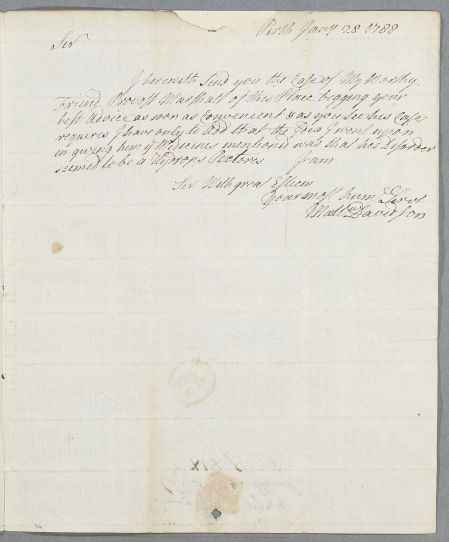 Perth Janry 28 1788
Sir
I herewith Send you the Case of My Worthy
Friend Provost Marshall of this Place begging your
best Advice as soon as Convenient & as you See his Case
requires I have only to add that the Idea I went upon
in giving him ye Medicines mentioned was that his Disorder
seemed to be a Hydrops Pectoris I am
Sir With great Esteem
Your most hum Servt
Matt Davidson